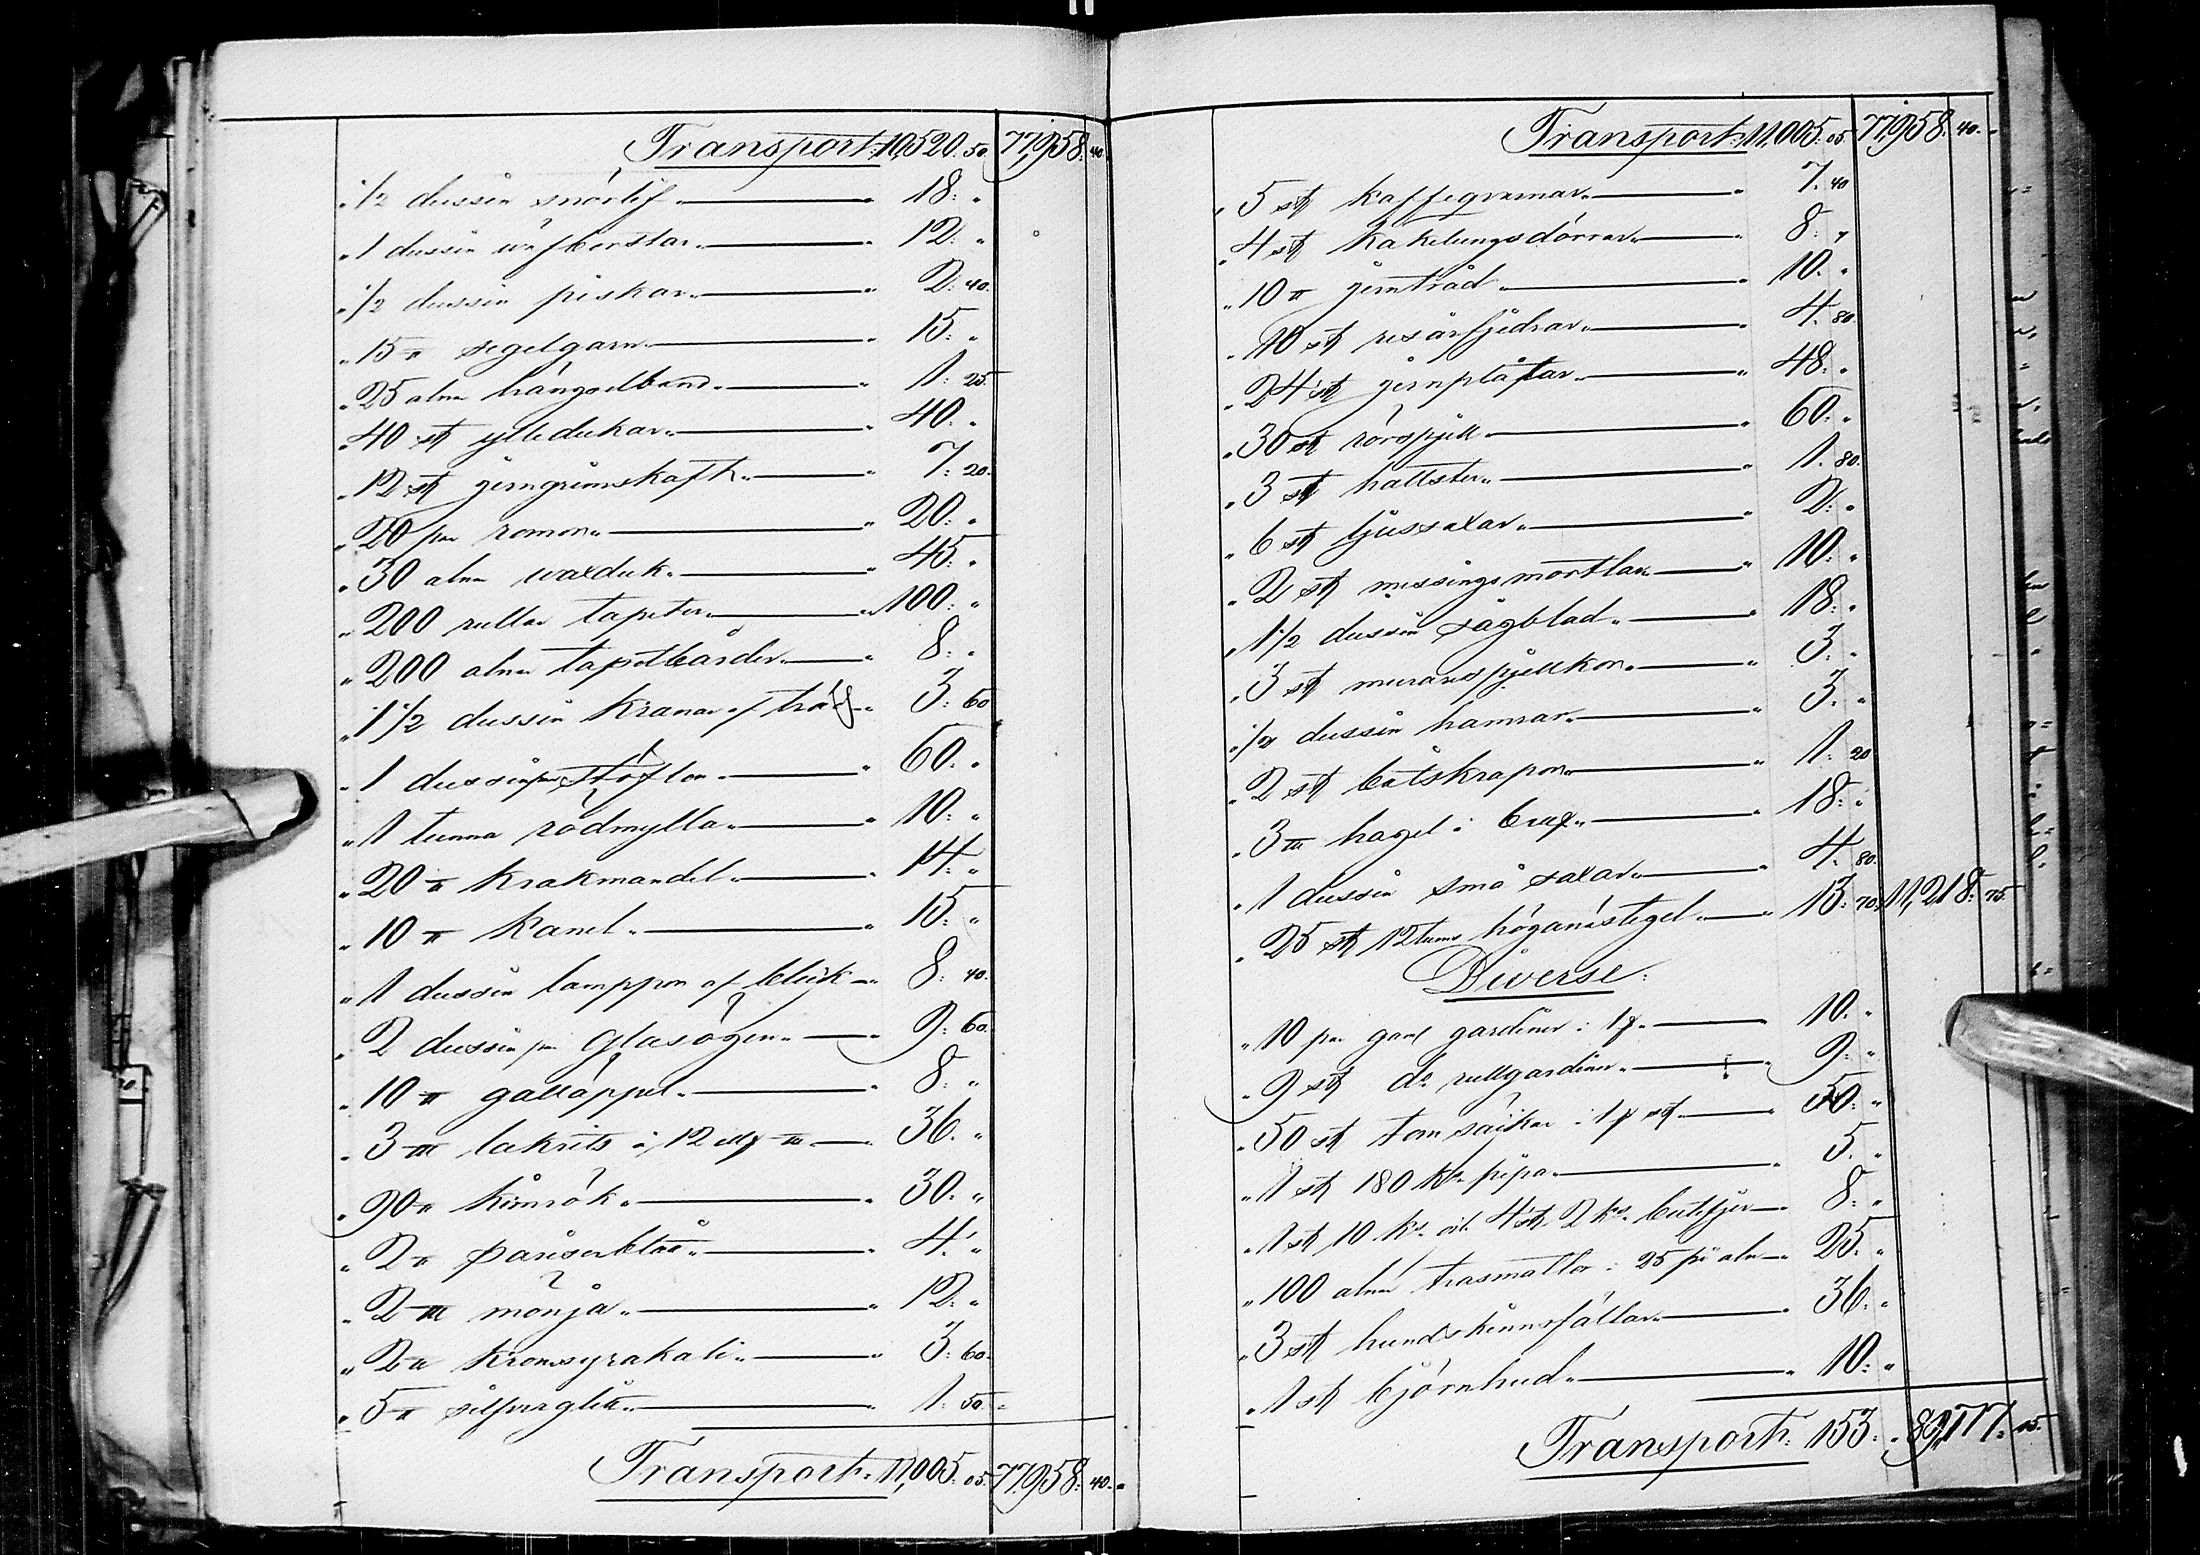 Transport: 10,520. 50. 77,958: 40.
„ 1/2 dussin snörlif „ „ 18: „
„ 1 dussin „ 12: „
„ 1/2 dussin piskar „ „ 2: 40.
„ 15 ℔ segelgarn „ 15: „
„ 25 alnar hängselband „ „ 1: 25.
„ 40 st ylledukar „ „ 40: „
„ 12 st „ 7: 20.
„ 20 par remmar „ „ 20: „
„ 30 alnar waxduk „ „ 45: „
„ 200 rullar tapeter „ „ 100: „
„ 200 alnar tapetbårder „ „ 8: „
„ 1 1/2 dussin kranar af trä „ 3: 60
„ 1 dussin par töflor „ „ 60: „
„ 1 tunna rödmylla „ „ 10: „
„ 20 ℔ krakmandel „ „ 14: „
„ 10 ℔ kanel „ „ 15: „
„ 1 dussin lamppor af bleck „ 8: 40.
„ 2 dussin par glasögon „ „ 9: 60.
„ 10 ℔ galläppel „ „ 8: „
„ 3 lakrits à 12 „ 36: „
„ 90 ℔ kimrök „ „ 30: „
„ 2 ℔ pariserblått „ „ 4: „
„ 2 mönja „ „ 12: „
„ 2 ℔ kromsyrakali „ „ 3: 60.
„ 5 ℔ silfverglitt „ „ 1: 50.
Transport: 11,005: 05. 77,958: 40.
Transport: 11,005: 05. 77,958: 40.
„ 5 st kaffegrumar „ „ 7: 40
„ 4 st kakelungsdörrar „ „ 8: „
„ 10 ℔ jerntråd „ „ 10: „
„ 10 st resårfjedrar „ „ 4: 80.
„ 24 st jernplåtar „ „ 48: „
„ 30 st rörspjell „ „ 60: „
„ 3 st „ 1: 80.
„ 6 st ljussaxar „ „ 2: „
„ 2 st messingsmortlar „ „ 10: „
„ 1 1/2 dussin sågblad „ „ 18: „
„ 3 st „ 3: „
„ 1/2 dussin hamrar „ „ 3: „
„ 2 st båtskrapor „ „ 1: 20
„ 3 hagel i „ 18: „
„ 1 dussin små saxar „ „ 4: 80.
„ 25 st 12tums höganästegel „ „ 13: 70. 11,218: 75.
Diverse:
„ 10 par gaml gardiner à 1 „ 10: „
„ 9 st do rullgardiner „ „ 9: „
„ 50 st tomsäckar à 1 st „ 50: „
„ 1 st 180 kr pipa „ „ 5: „
„ 1 st 10 kr och 4 st 2 kr buteljer „ 8: „
„ 100 alnar trasmattor à 25 pr aln „ 25: „
„ 3 st hundskinnsfällar „ „ 36: „
„ 1 st björnhud „ „ 10: „
Transport: 153: „ 89,177: 15.